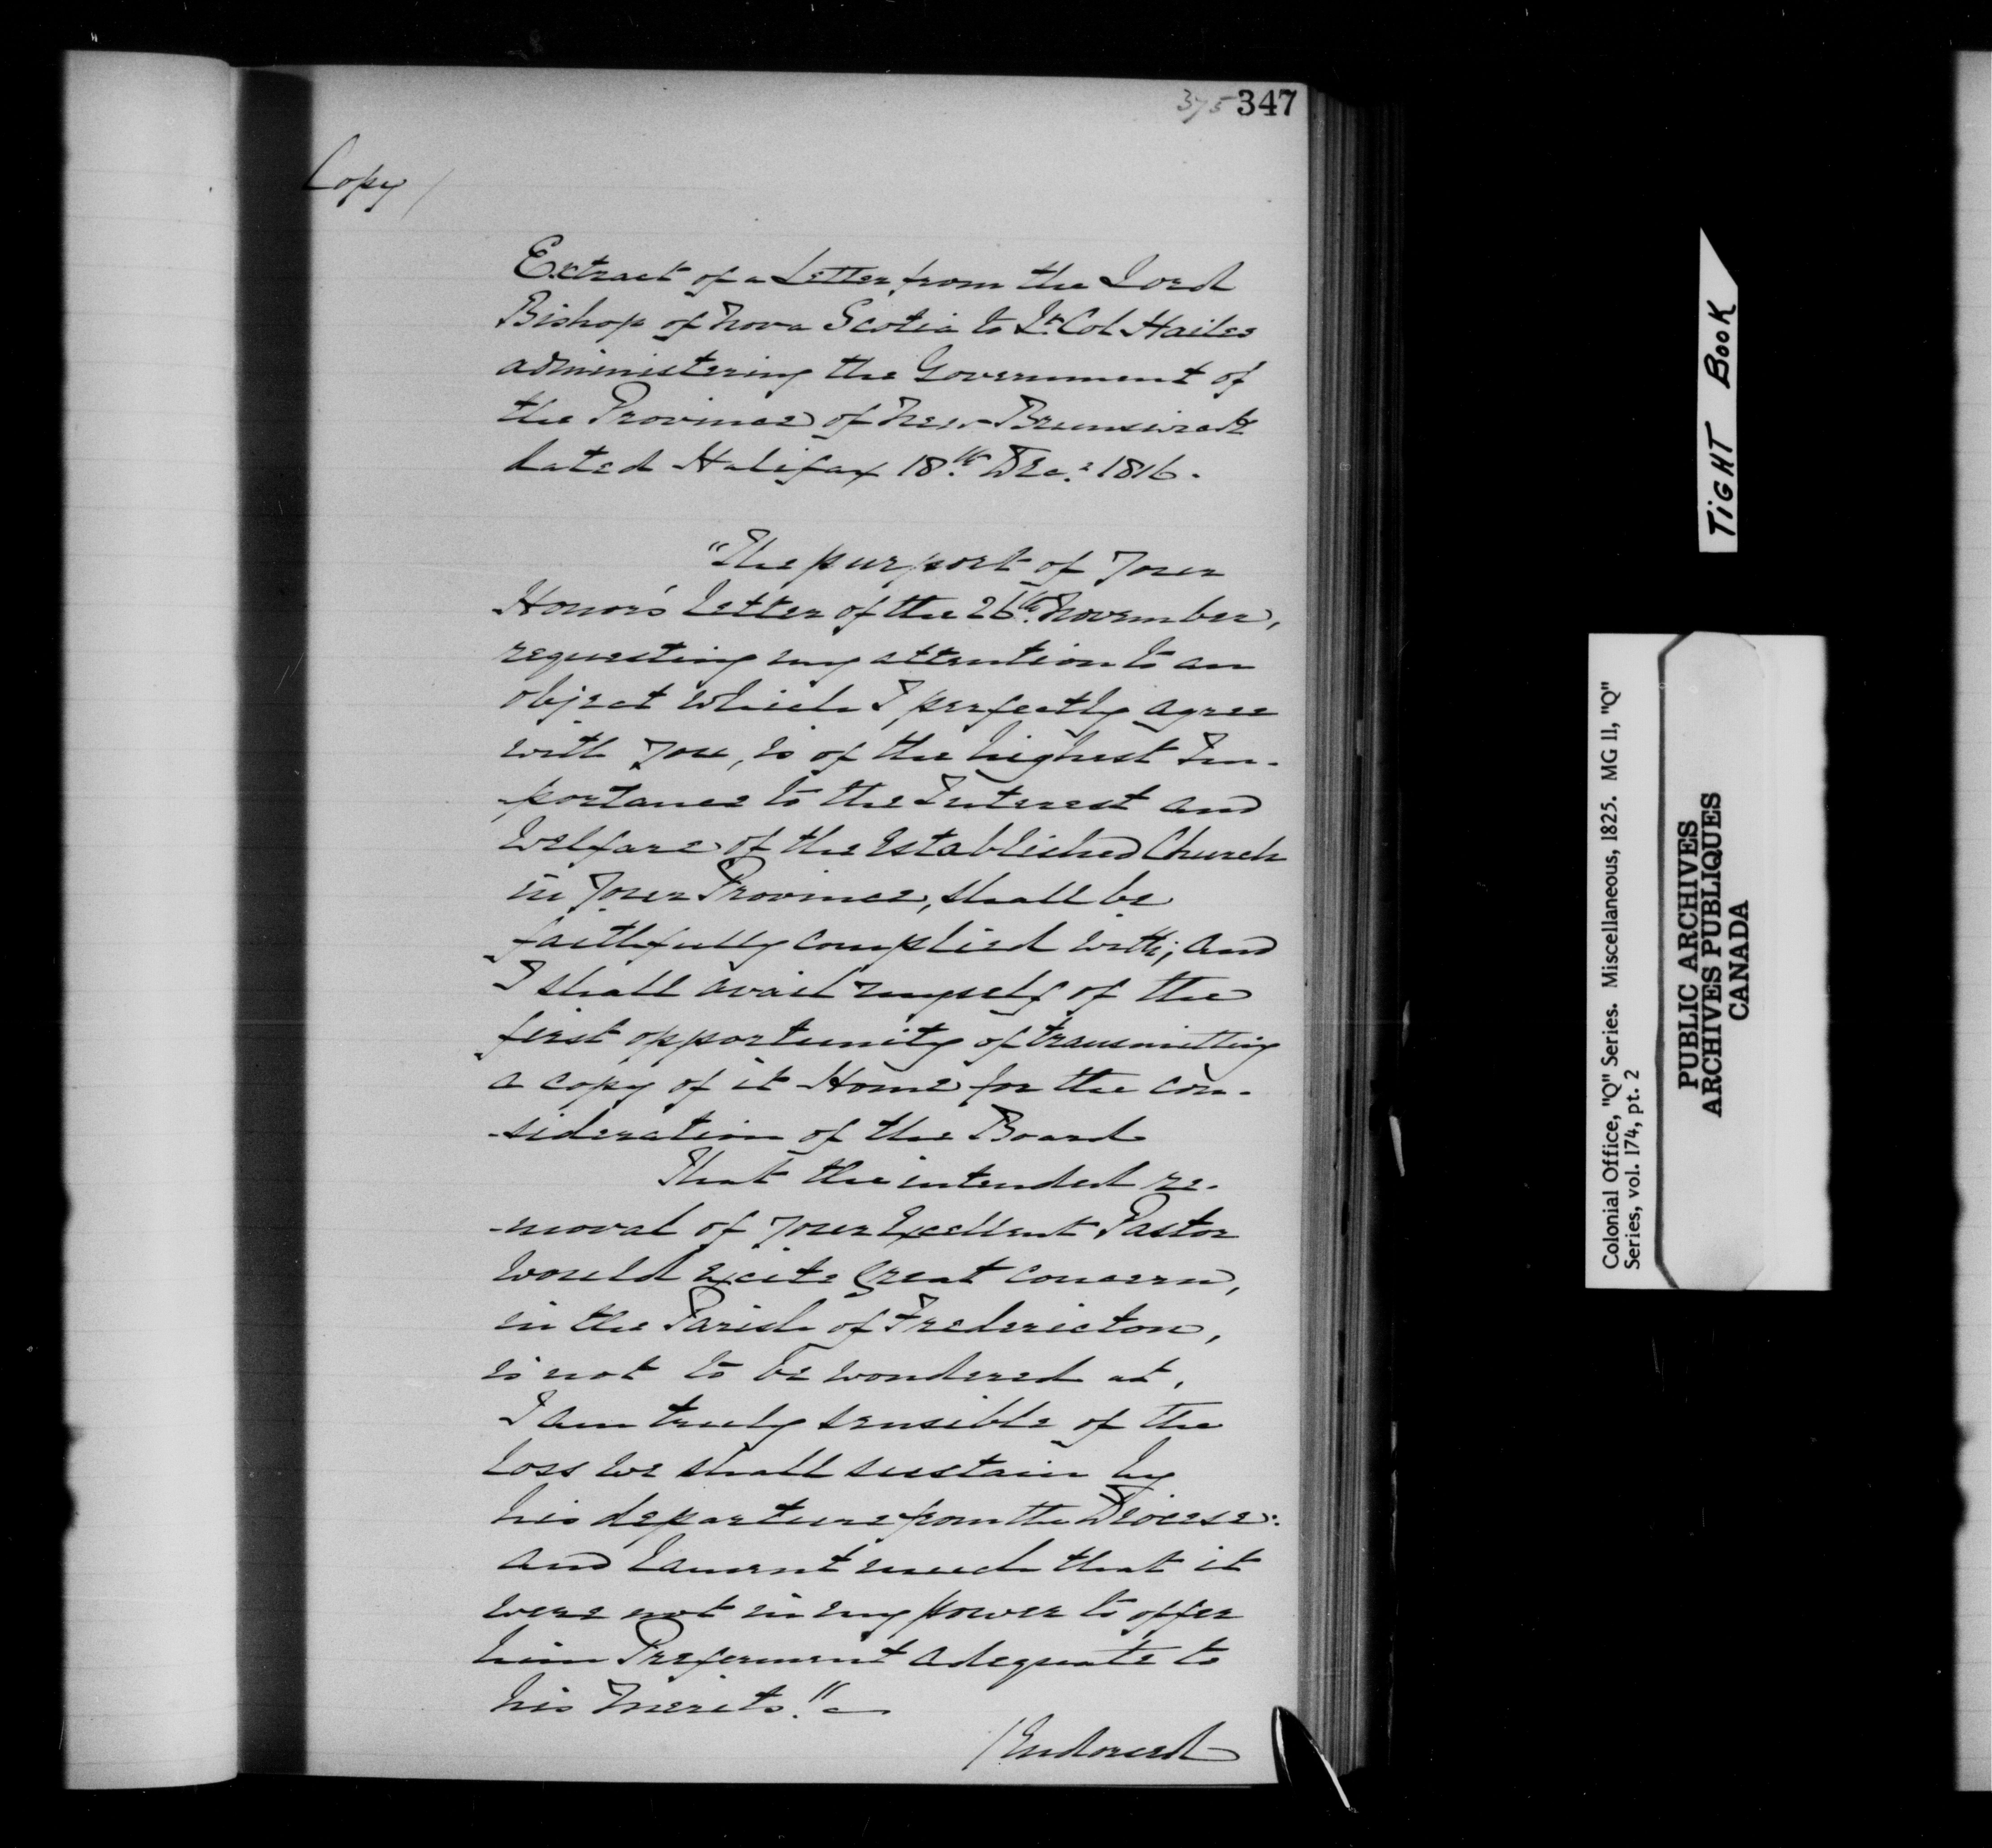 375 347
Copy /
Extract of a Letter from the Lord
Bishop of Nova Scotia to Lt. Col Hailes
administering the Government of
the Province of New-Brunswick
dated Halifax 18th. Decr. 1816.
"The purport of Your
Honor's Letter of the 26th. November,
requesting my attention to an
object which I perfectly agree
with You, is of the highest Im-
-portance to the Interest and
Welfare of the Established Church
in Your Province, shall be
faithfully complied with; and
I shall avail myself of the
first opportunity of transmitting
a copy of it Home for the con-
-sideration of the Board
That the intended re-
-moval of your Excellent Pastor
would excite Great concern,
in the Parish of Fredericton,
is not to be wondered at.
I am truly sensible of the
loss we shall sustain by
his departure from the Diocese:
and lament much that it
were not in my power to offer
him Preferment adequate to
his Merits."
/Endorsed
TiGHT BOOK
Colonial Office, "Q" Series. Miscellaneous, 1825. MG 11, "Q"
Series, vol. 174, pt. 2
PUBLIC ARCHIVES
ARCHIVES PUBLIQUES
CANADA